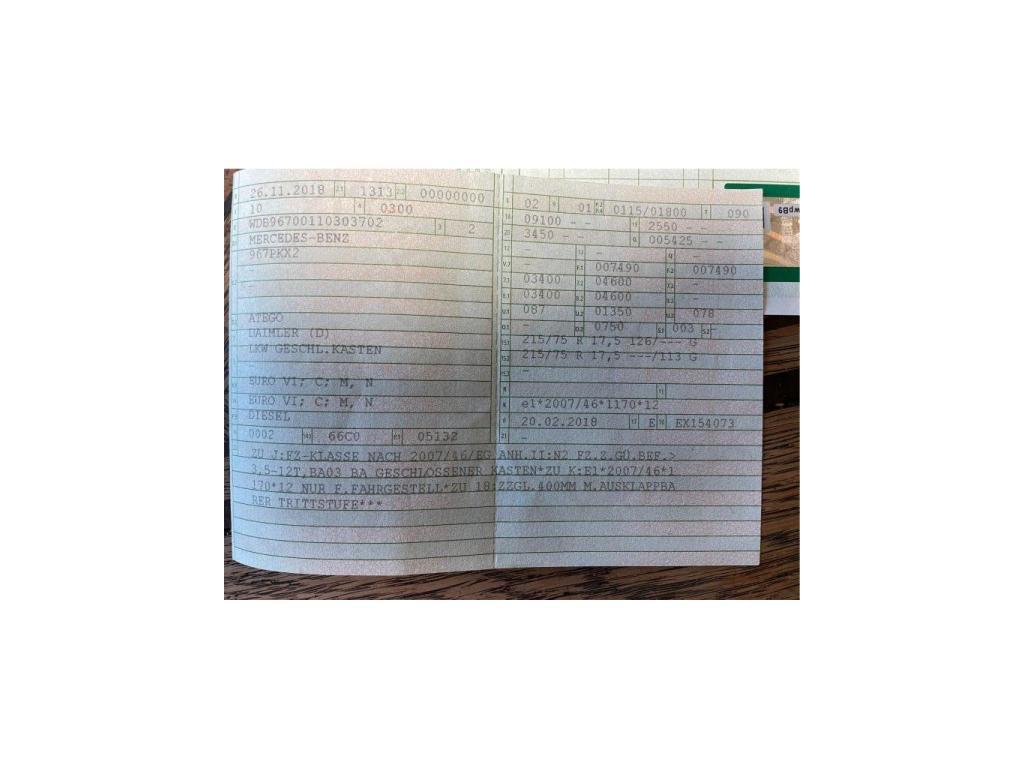 26.11.2018 2.1 1313 2.2 00000000
10 4 0300
WDB96700110303702 3 2
MERCEDES-BENZ
967PKX2
-
-
-
ATEGO
DAIMLER (D)
LKW GESCHL.KASTEN
EURO VI; C; M, N
EURO VI; C; M, N
DIESEL
0002 14.1 66C0 P.1 05132
L 02 9 01 P.2 P.4 0115/01800 T 090
18 09100 - - 19 2550 - -
20 3450 - - G 005425 - -
12 - 13 - Q -
V.7 - F.1 007490 F.2 007490
7.1 03400 7.2 04600 7.3 -
8.1 03400 8.2 04600 8.3 -
U.1 087 U.2 01350 U.3 078
O.1 - O.2 0750 S.1 003 S.2 -
15.1 215/75 R 17,5 126/--- G
15.2 215/75 R 17,5 ---/113 G
15.3 -
R 11
K e1*2007/46*1170*12
6 20.02.2018 17 E 16 EX154073
21 -
ZU J:FZ-KLASSE NACH 2007/46/EG ANH.II:N2 FZ.Z.GÜ.BEF.>
3,5-12T,BA03 BA GESCHLOSSENER KASTEN*ZU K:E1*2007/46*1
170*12 NUR F.FAHRGESTELL*ZU 18:ZZGL.400MM M.AUSKLAPPBA
RER TRITTSTUFE***